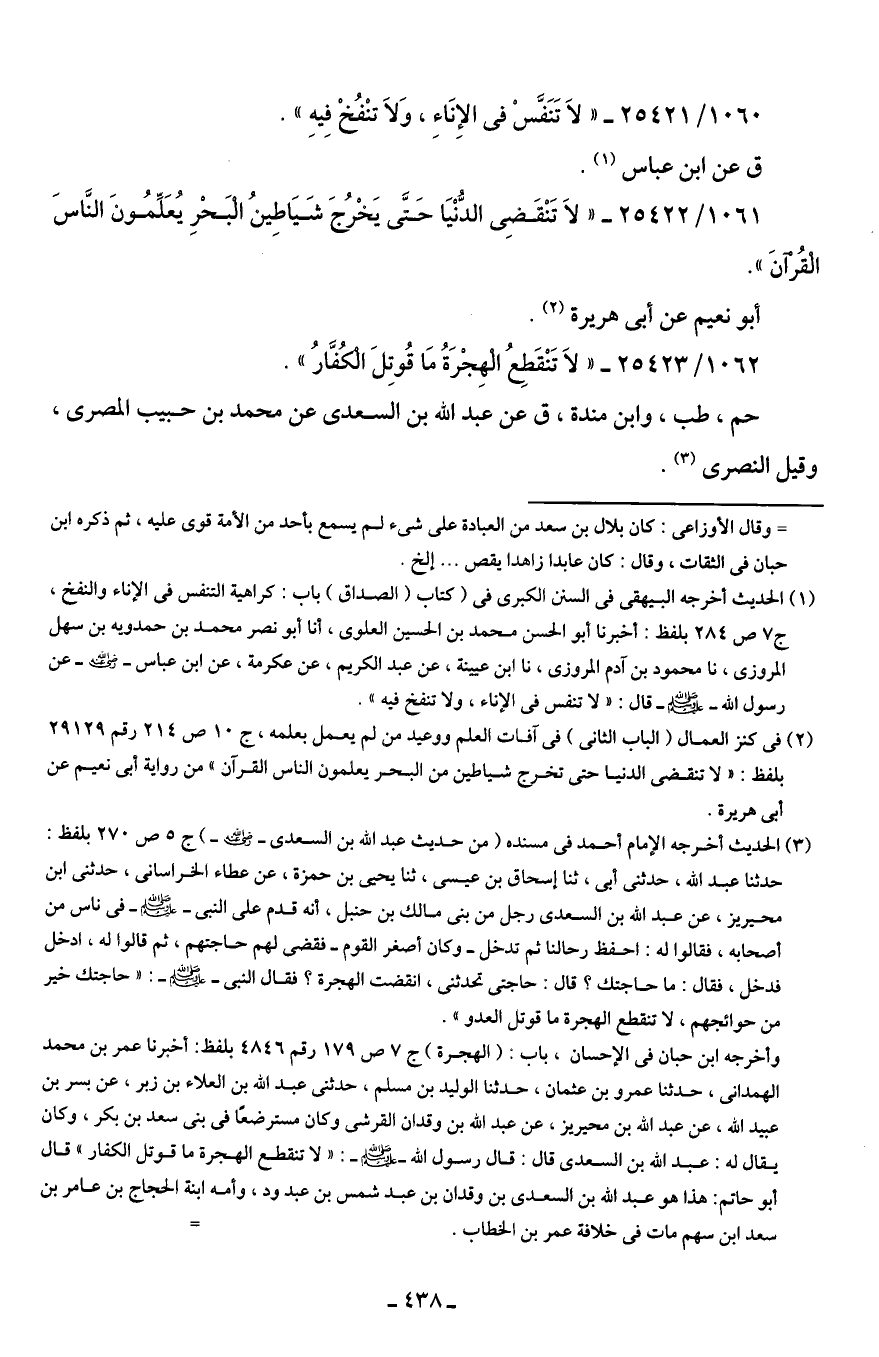 ١٠٦٠/ ٢٥٤٢١ ـ « لاَ تَنَفَّسْ فى الإِنَاءِ ، وَلاَ تنْفُخْ فِيهِ » .
ق عن ابن عباس (١) .
١٠٦١/ ٢٥٤٢٢ ـ « لاَ تَنْقَضِى الدُّنْيَا حَتَّى يَخْرُجَ شَيَاطِينُ الْبَحْرِ يُعَلِّمُونَ النَّاسَ
الْقُرْآنَ ».
أبو نعيم عن أبى هريرة (٢) .
١٠٦٢/ ٢٥٤٢٣ ـ « لاَ تَنْقَطِعُ الْهِجْرَةُ مَا قُوتِلَ الْكُفَّارُ » .
حم ، طب ، وابن مندة ، ق عن عبد الله بن السعدى عن محمد بن حبيب المصرى ،
وقيل النصرى (٣) .
= وقال الأوزاعى : كان بلال بن سعد من العبادة على شىء لم يسمع بأحد من الأمة قوى عليه ، ثم ذكره ابن
حبان فى الثقات ، وقال : كان عابدا زاهدا يقص ... إلخ .
(١) الحديث أخرجه البيهقى فى السنن الكبرى فى ( كتاب ( الصداق ) باب : كراهية التنفس فى الإناء والنفخ ،
ج٧ ص ٢٨٤ بلفظ : أخبرنا أبو الحسن محمد بن الحسين العلوى ، أنا أبو نصر محمد بن حمدويه بن سهل
المروزى ، نا محمود بن آدم المروزى ، نا ابن عيينة ، عن عبد الكريم ، عن عكرمة ، عن ابن عباس ـ رضي الله عنه ـ عن
رسول الله ـ ﷺ ـ قال : « لا تنفس فى الإناء ، ولا تنفخ فيه » .
(٢) فى كنز العمال ( الباب الثانى ) فى آفات العلم ووعيد من لم يعمل بعلمه ، ج ١٠ ص ٢١٤ رقم ٢٩١٢٩
بلفظ : « لا تنقضى الدنيا حتى تخرج شياطين من البحر يعلمون الناس القرآن » من رواية أبى نعيم عن
أبى هريرة .
(٣) الحديث أخرجه الإمام أحمد فى مسنده ( من حديث عبد الله بن السعدى ـ رضي الله عنه ـ ) ج ٥ ص ٢٧٠ بلفظ :
حدثنا عبد الله ، حدثنى أبى ، ثنا إسحاق بن عيسى ، ثنا يحيى بن حمزة ، عن عطاء الخراسانى ، حدثنى ابن
محيريز ، عن عبد الله بن السعدى رجل من بنى مالك بن حنبل ، أنه قدم على النبى ـ ﷺ ـ فى ناس من
أصحابه ، فقالوا له : احفظ رحالنا ثم تدخل ـ وكان أصغر القوم ـ فقضى لهم حاجتهم ، ثم قالوا له ، ادخل
فدخل ، فقال : ما حاجتك ؟ قال : حاجتى تحدثنى ، انقضت الهجرة ؟ فقال النبى ـ ﷺ ـ : « حاجتك خير
من حوائجهم ، لا تنقطع الهجرة ما قوتل العدو » .
وأخرجه ابن حبان فى الإحسان ، باب : ( الهجرة ) ج ٧ ص ١٧٩ رقم ٤٨٤٦ بلفظ: أخبرنا عمر بن محمد
الهمدانى ، حدثنا عمرو بن عثمان ، حدثنا الوليد بن مسلم ، حدثنى عبد الله بن العلاء بن زبر ، عن بسر بن
عبيد الله ، عن عبد الله بن محيريز ، عن عبد الله بن وقدان القرشى وكان مسترضعًا فى بنى سعد بن بكر ، وكان
يقال له : عبد الله بن السعدى قال : قال رسول الله ـ ﷺ ـ : « لا تنقطع الهجرة ما قوتل الكفار » قال
أبو حاتم: هذا هو عبد الله بن السعدى بن وقدان بن عبد شمس بن عبد ود ، وأمه ابنة الحجاج بن عامر بن
سعد ابن سهم مات فى خلافة عمر بن الخطاب . =
ـ ٤٣٨ ـ